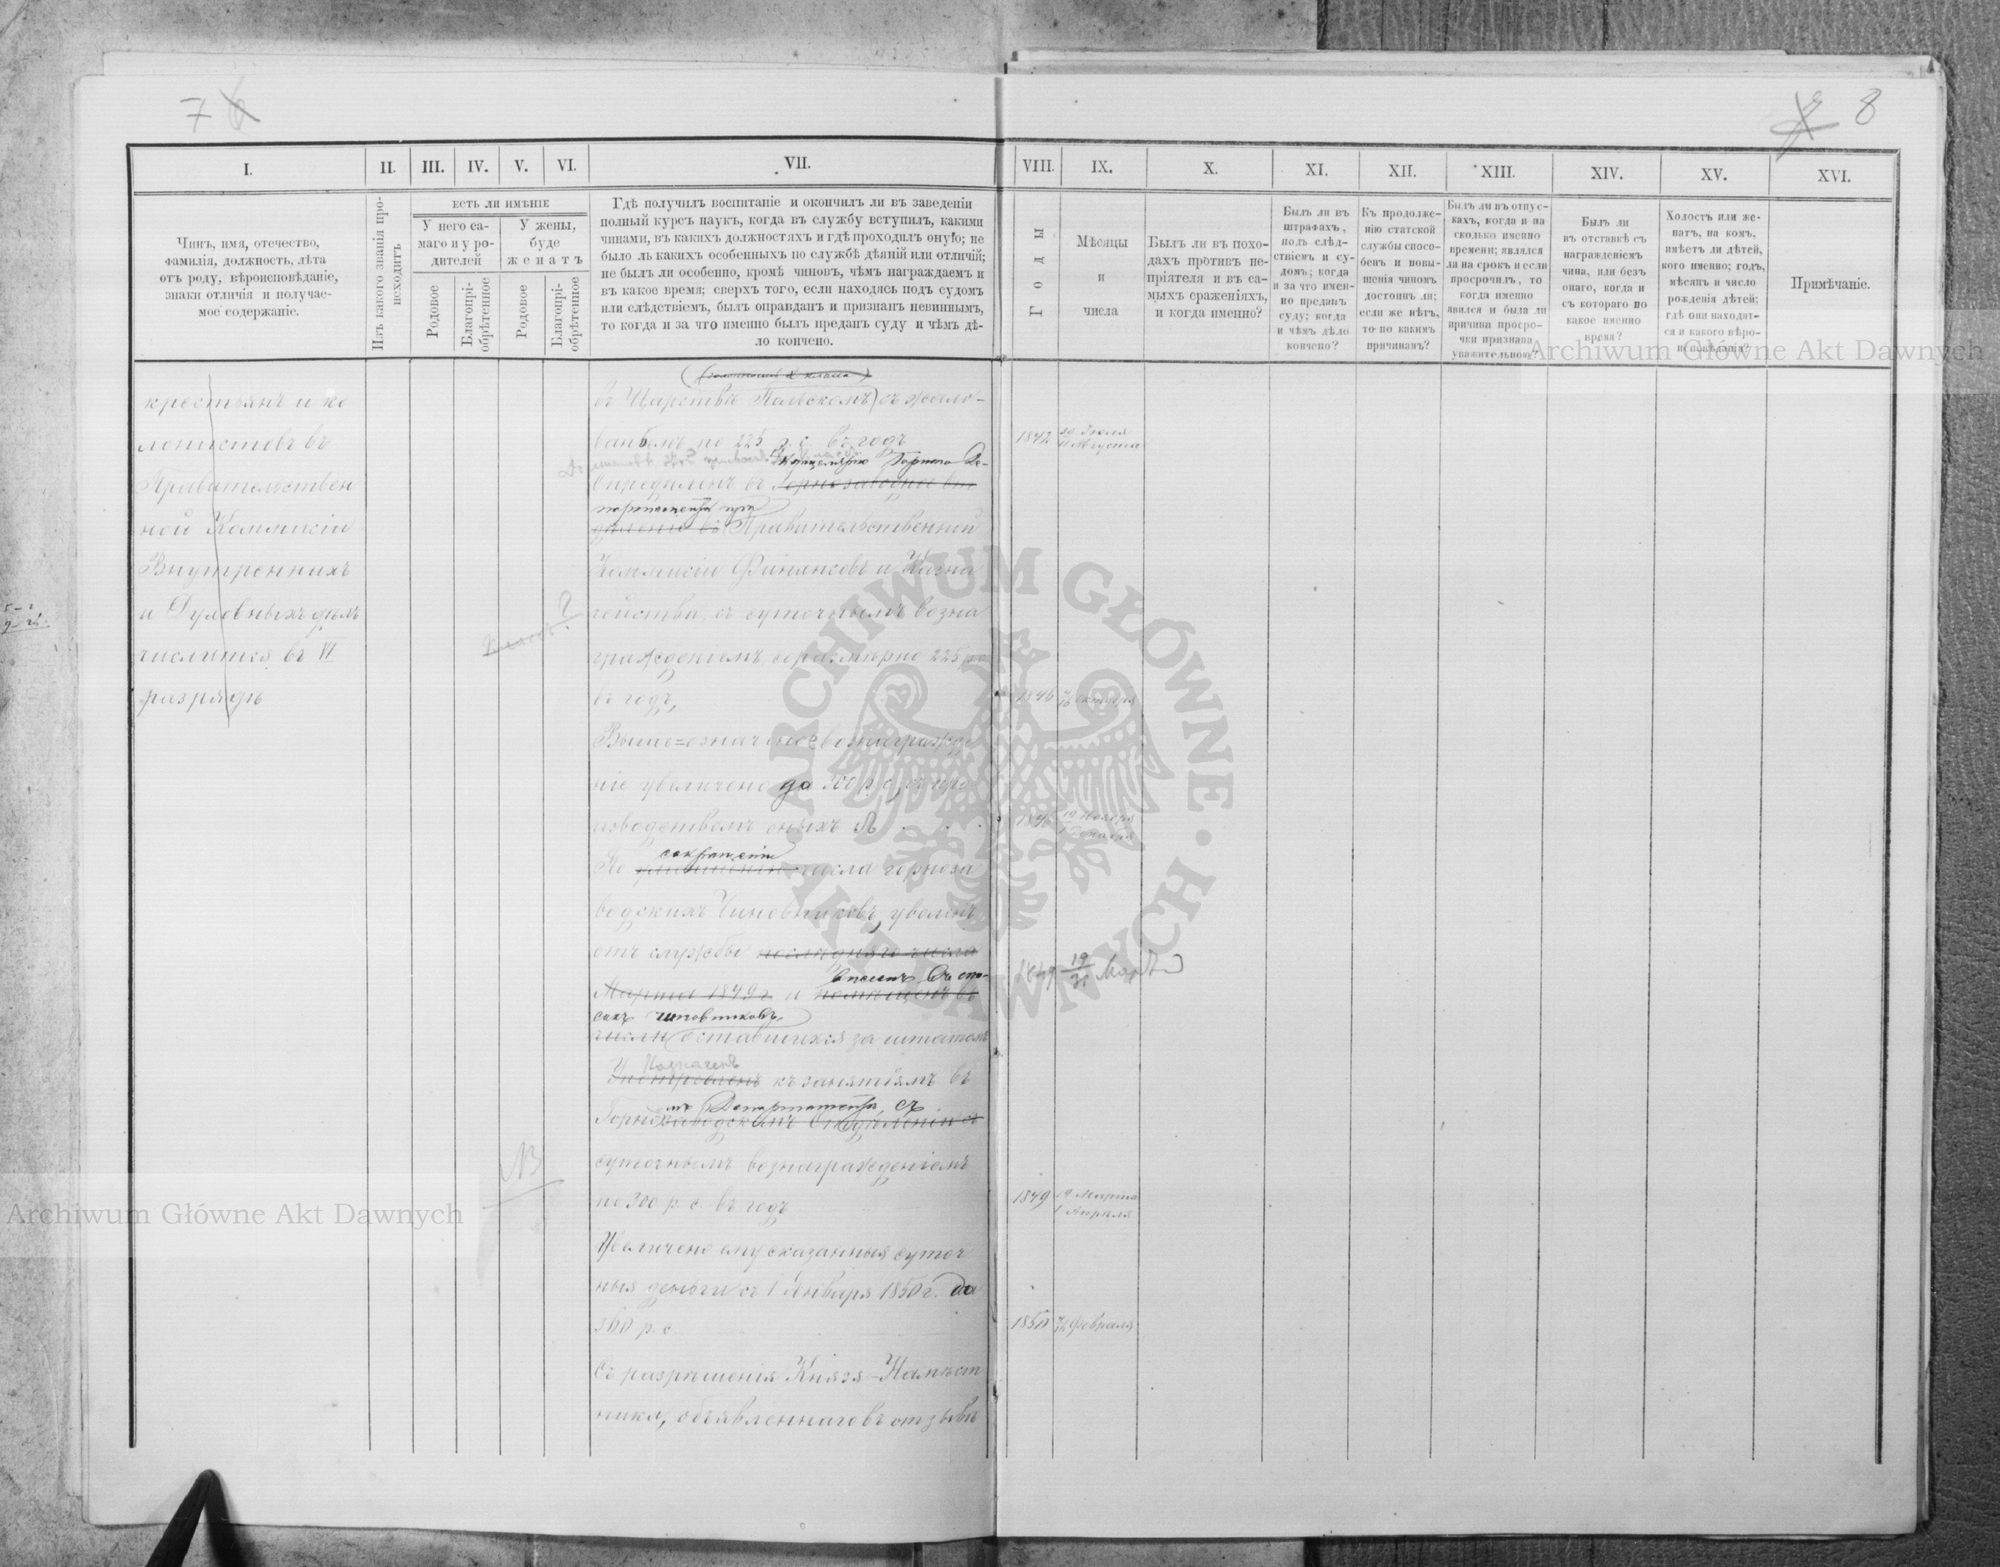 7
8
I.
II.
III.
IV.
V.
VI.
VII.
VIII.
IX.
X.
XI.
XII.
XIII.
XIV.
XV.
XVI.
Чинъ, имя, отечество,
фамилія, должность, лѣта
отъ роду, вѣроисповѣданіе,
знаки отличія и получае-
мое содержаніе.
Изъ какого званія про-
исходитъ
ЕСТЬ ЛИ ИМѢНІЕ
У него са-
маго и у ро-
дителей
У жены,
буде
женатъ
Родовое
Благопрі-
обрѣтенное
Родовое
Благопрі-
обрѣтенное
Гдѣ получилъ воспитаніе и окончилъ ли въ заведеніи
полный курсъ наукъ, когда въ службу вступилъ, какими
чинами, въ какихъ должностяхъ и гдѣ проходилъ оную; не
было ль какихъ особенныхъ по службѣ дѣяній или отличій;
не былъ ли особенно, кромѣ чиновъ, чѣмъ награждаемъ и
въ какое время; сверхъ того, если находясь подъ судомъ
или слѣдствіемъ, былъ оправданъ и признанъ невиннымъ,
то когда и за что именно былъ преданъ суду и чѣмъ дѣ-
ло кончено.
Годы
Мѣсяцы
и
числа
Былъ ли въ похо-
дахъ противъ не-
пріятеля и въ са-
мыхъ сраженіяхъ,
и когда именно?
Былъ ли въ
штрафахъ,
подъ слѣд-
ствіемъ и су-
домъ; когда
и за что имен-
но преданъ
суду; когда
и чѣмъ дѣло
кончено?
Къ продолже-
нію статской
службы спосо-
бенъ и повы-
шенія чиномъ
достоинъ ли;
если же нѣтъ,
то по какимъ
причинамъ?
Былъ ли въ отпус-
кахъ, когда и на
сколько именно
времени; являлся
ли на срокъ и если
просрочилъ, то
когда именно
явился и была ли
причина просро-
чки признана
уважительною?
Былъ ли
въ отставкѣ съ
награжденіемъ
чина, или безъ
онаго, когда и
съ котораго по
какое именно
время?
Холостъ или же-
натъ, на комъ,
имѣетъ ли дѣтей,
кого именно; годъ,
мѣсяцъ и число
рожденія дѣтей;
гдѣ они находят-
ся и какого вѣро-
исповѣданія?
Примѣчаніе.
крестьянъ и ко
лонистовъ въ
Правительствен
ной Коммисіи
Внутреннихъ
и Духовныхъ дѣлъ
числится въ VI
разрядѣ
въ Царствѣ Польскомъ) съ жало-
ваньемъ по 225 р. с. въ годъ
1842 29 Іюля
11 Августа
Канцелярію Горнаго Де-
Опредѣленъ въ Горнозаводское От
партамента при
дѣленіе въ Правительственной
Коммисіи Финансовъ и Казна
чейства съ суточнымъ возна
гражденіемъ соразмѣрно 225 р
въ годъ,
1846 Октября
Выше=означеное вознагражде
ніе увеличено до 300 р. с, съ про
изводствомъ оныхъ
1846 19 Ноября
1 Декабря
сокращенію
По числа горноза
водскихъ Чиновниковъ, уволенъ
отъ службы послѣдняго числа
1849 19/31 Марта
внесенъ въ спи-
Марта 1849 г. и помѣщенъ въ
сокъ чиновниковъ,
числѣ оставшихся за штатомъ
Назначенъ
къ занятіямъ въ
мъ Департаментѣ, съ
Горнозаводскомъ Отдѣленіи съ
суточнымъ вознагражденіемъ
по 300 р. с. въ годъ
1849 19 Марта
1 Апрѣля
Увеличено ему сказанныя суточ
ныя деньги съ 1 Января 1850 г. до
360 р. с
1850 Февраля
Съ разрѣшенія Князя-Намѣст
ника, объявленнаго въ отзывѣ
NB
Archiwum Główne Akt Dawnych
Archiwum Główne Akt Dawnych
ARCHIWUM GŁÓWNE AKT DAWNYCH